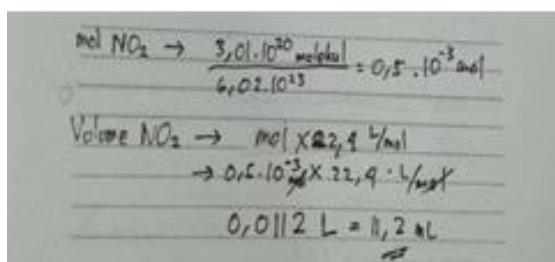 mol NO₂ → 3,01.10²⁰ molekul / 6,02.10²³ = 0,5.10⁻³ mol
Volume NO₂ → mol X 22,4 L/mol
→ 0,5.10⁻³ X 22,4 L/mol
0,0112 L = 11,2 mL